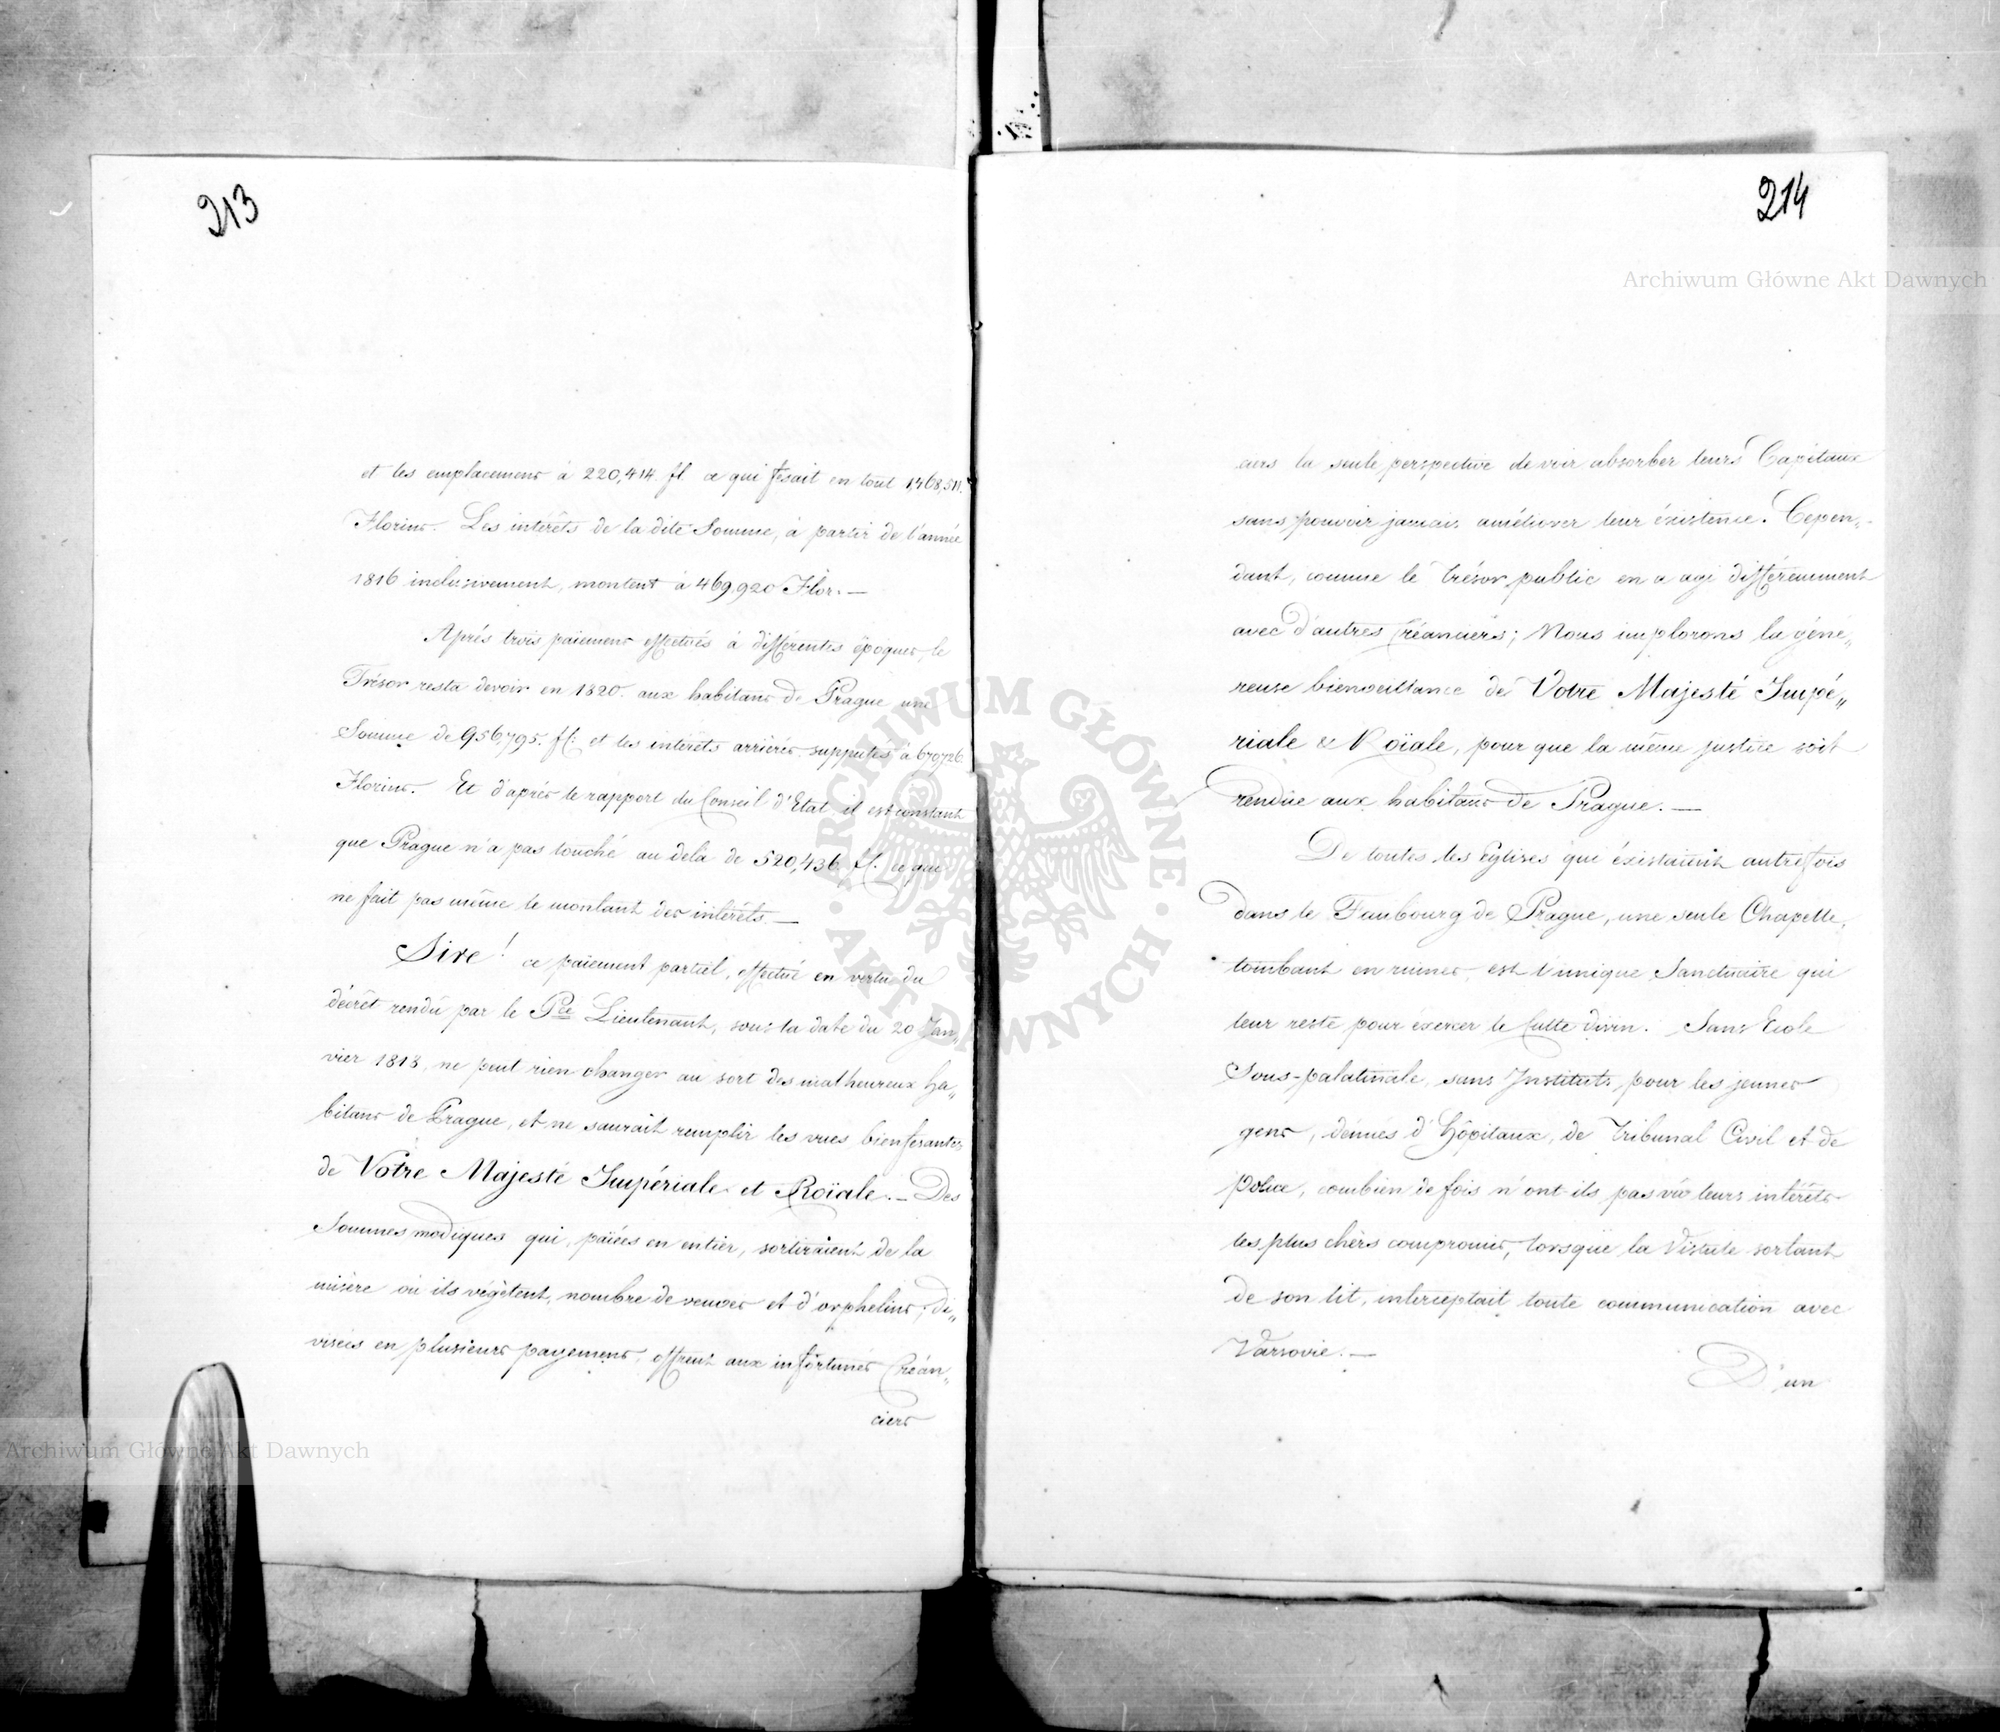 213
et les emplacemens à 220,414. fl ce qui fesait en tout 1,468,511.
Florins. Les intérêts de la dite Somme, à partir de l'année
1816 inclusivement, montent à 469,920 Flor. —
Après trois paiemens effectués à différentes époques, le
Trésor resta devoir en 1820. aux habitans de Prague une
Somme de 956,795. fl: et les intérêts arriérés supputés à 670,726
Florins. Et d'après le rapport du Conseil d'Etat il est constant
que Prague n'a pas touché au delà de 520,436 fl. ce qui
ne fait pas même le montant des intérêts. —
Sire! ce paiement partiel, effectué en vertu du
décrêt rendû par le Pce Lieutenant, sous la date du 20 Jan„
vier 1818, ne peut rien changer au sort des malheureux ha„
bitans de Prague, et ne saurait remplir les vues bienfesantes
de Votre Majesté Impériale et Roïale. — Des
Sommes modiques qui, païées en entier, sortiraient de la
misère où ils végètent, nombre de veuves et d'orphelins, di„
visées en plusieurs payemens, offrent aux infortunés Créan„
ciers
214
ciers la seule perspective de voir absorber leurs Capitaux
sans pouvoir jamais améliorer leur éxistence. Cepen„
dant, comme le trésor public en a agi différemment
avec d'autres Créanciers; Nous implorons la géné„
reuse bienveillance de Votre Majesté Impé„
riale & Roïale, pour que la même justice soit
rendüe aux habitans de Prague. —
De toutes les Eglises qui éxistaient autrefois
dans le Faubourg de Prague, une seule Chapelle,
tombant en ruines, est l'unique Sanctuaire qui
leur reste pour éxercer le Culte divin. Sans Ecole
Sous-palatinale, sans Instituts pour les jeunes
gens, dénués d'Hôpitaux, de Tribunal Civil et de
Police, combien de fois n'ont-ils pas vû leurs intérêts
les plus chèrs compromis, lorsque la Vistule sortant
de son lit, interceptait toute communication avec
Varsovie. —
D'un
Archiwum Główne Akt Dawnych
Archiwum Główne Akt Dawnych
ARCHIWUM GŁÓWNE · AKT DAWNYCH ·